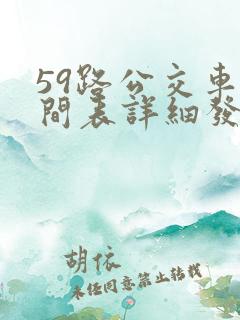 59路公交車
間表詳細發
胡依
未任同意禁止转载